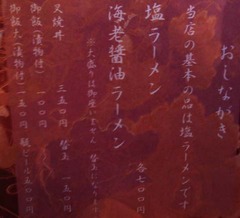 おしながき
当店の基本の品は塩ラーメンです
塩ラーメン
海老醤油ラーメン
各七〇〇
※大盛りは御座いません
叉焼丼 三五〇
替玉 一五〇
御飯(漬物付) 一〇〇
御飯大(漬物付) 一五〇
瓶ビール 五〇〇